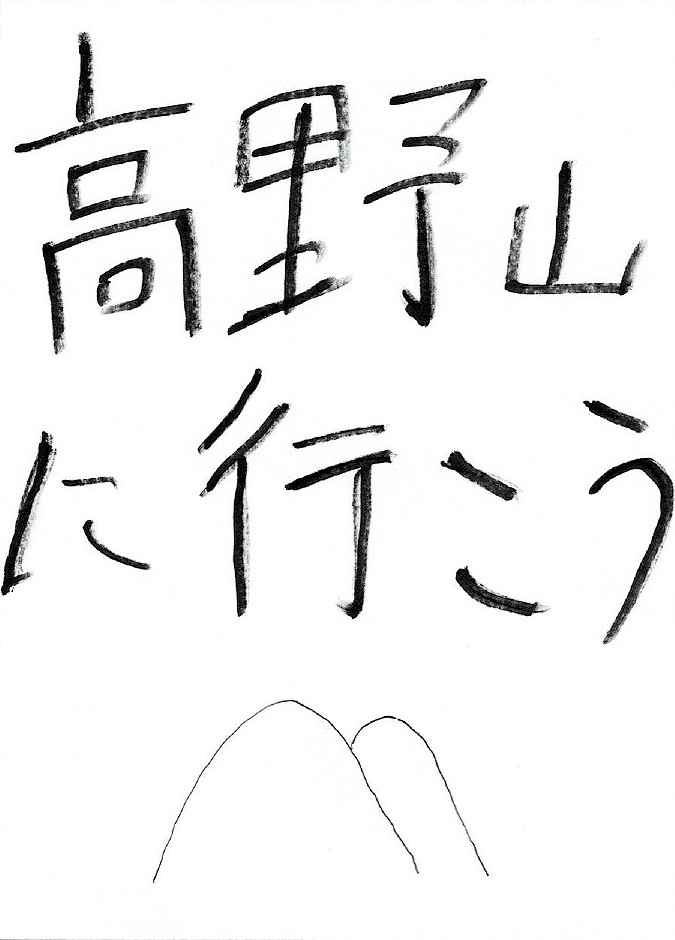 高野山
に行こう